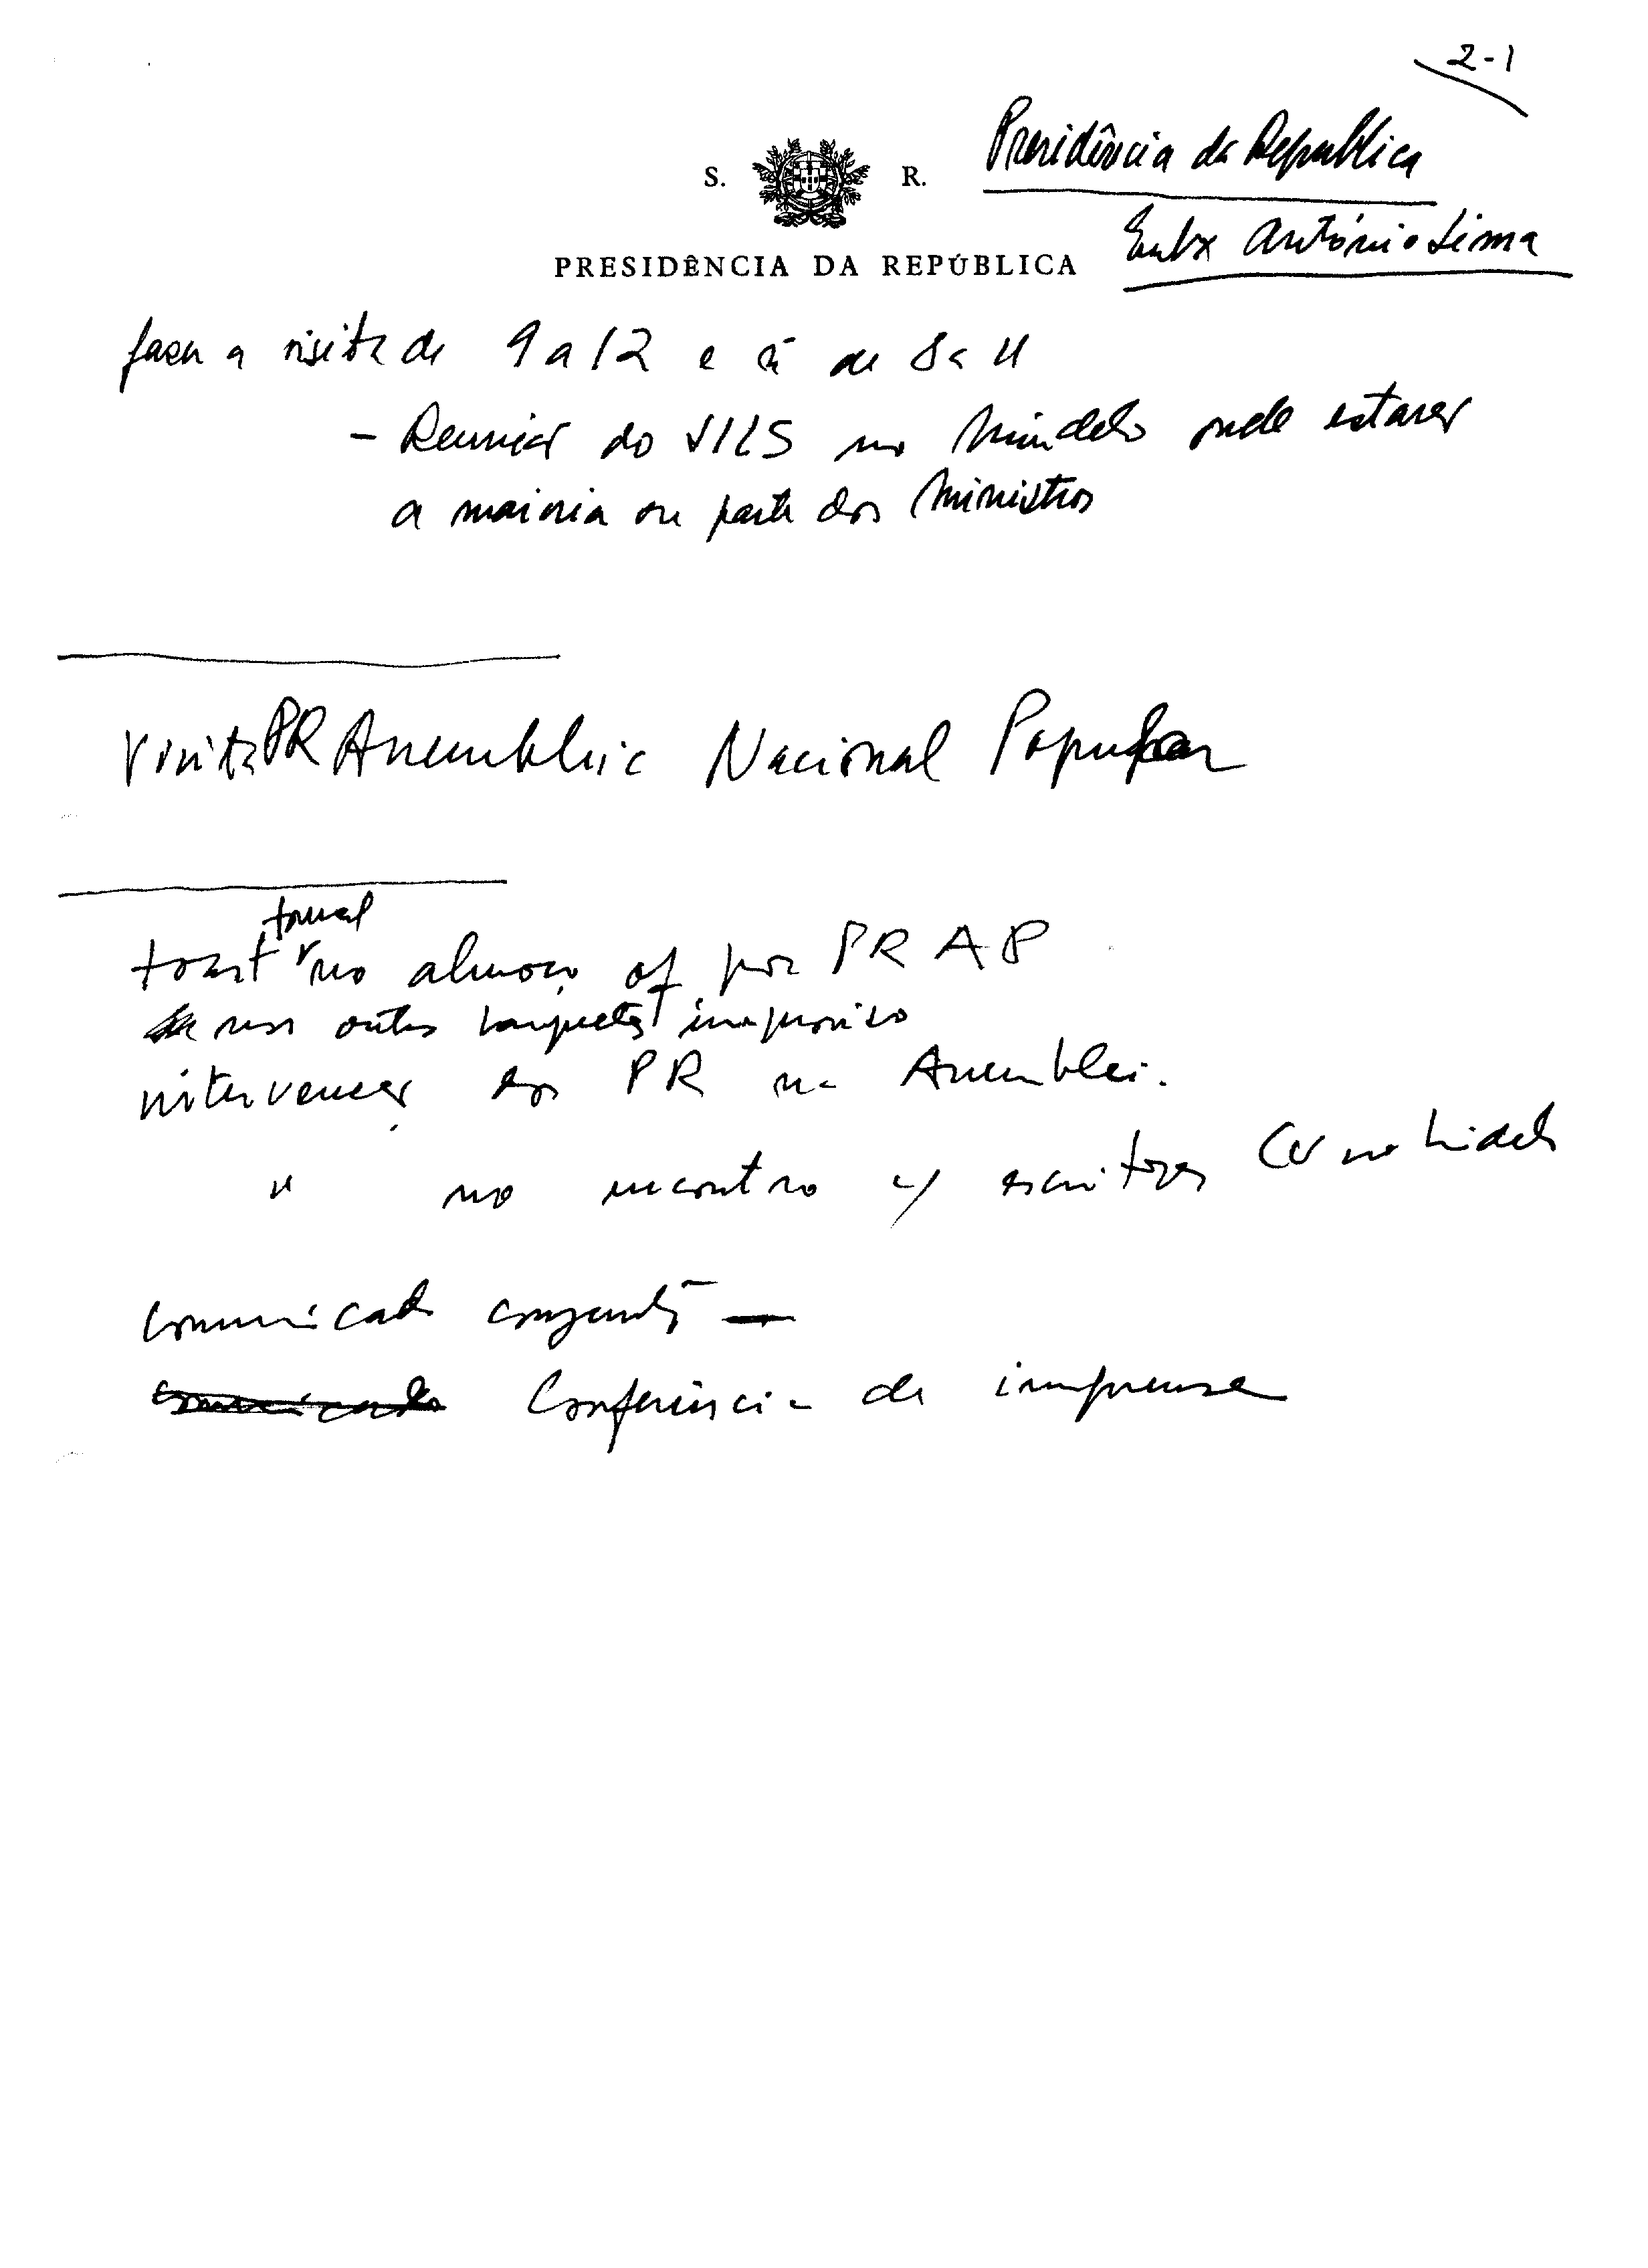 2-1
Presidência da Republica
S. R.
Embx António Lima
PRESIDÊNCIA DA REPÚBLICA
fazer a visita de 9 a 12 e ñ de 8 a 11
- Reunião do no Mindelo onde estarão
a maioria ou parte dos Ministros
Visita PR Assembleia Nacional Popular
formal
toast no almoço of por PR AP
nos outros banquetes improviso
intervenção do PR na Assembleia
" no encontro c/ escritores CV no
comunicado conjunto —
comunicado Conferência de imprensa